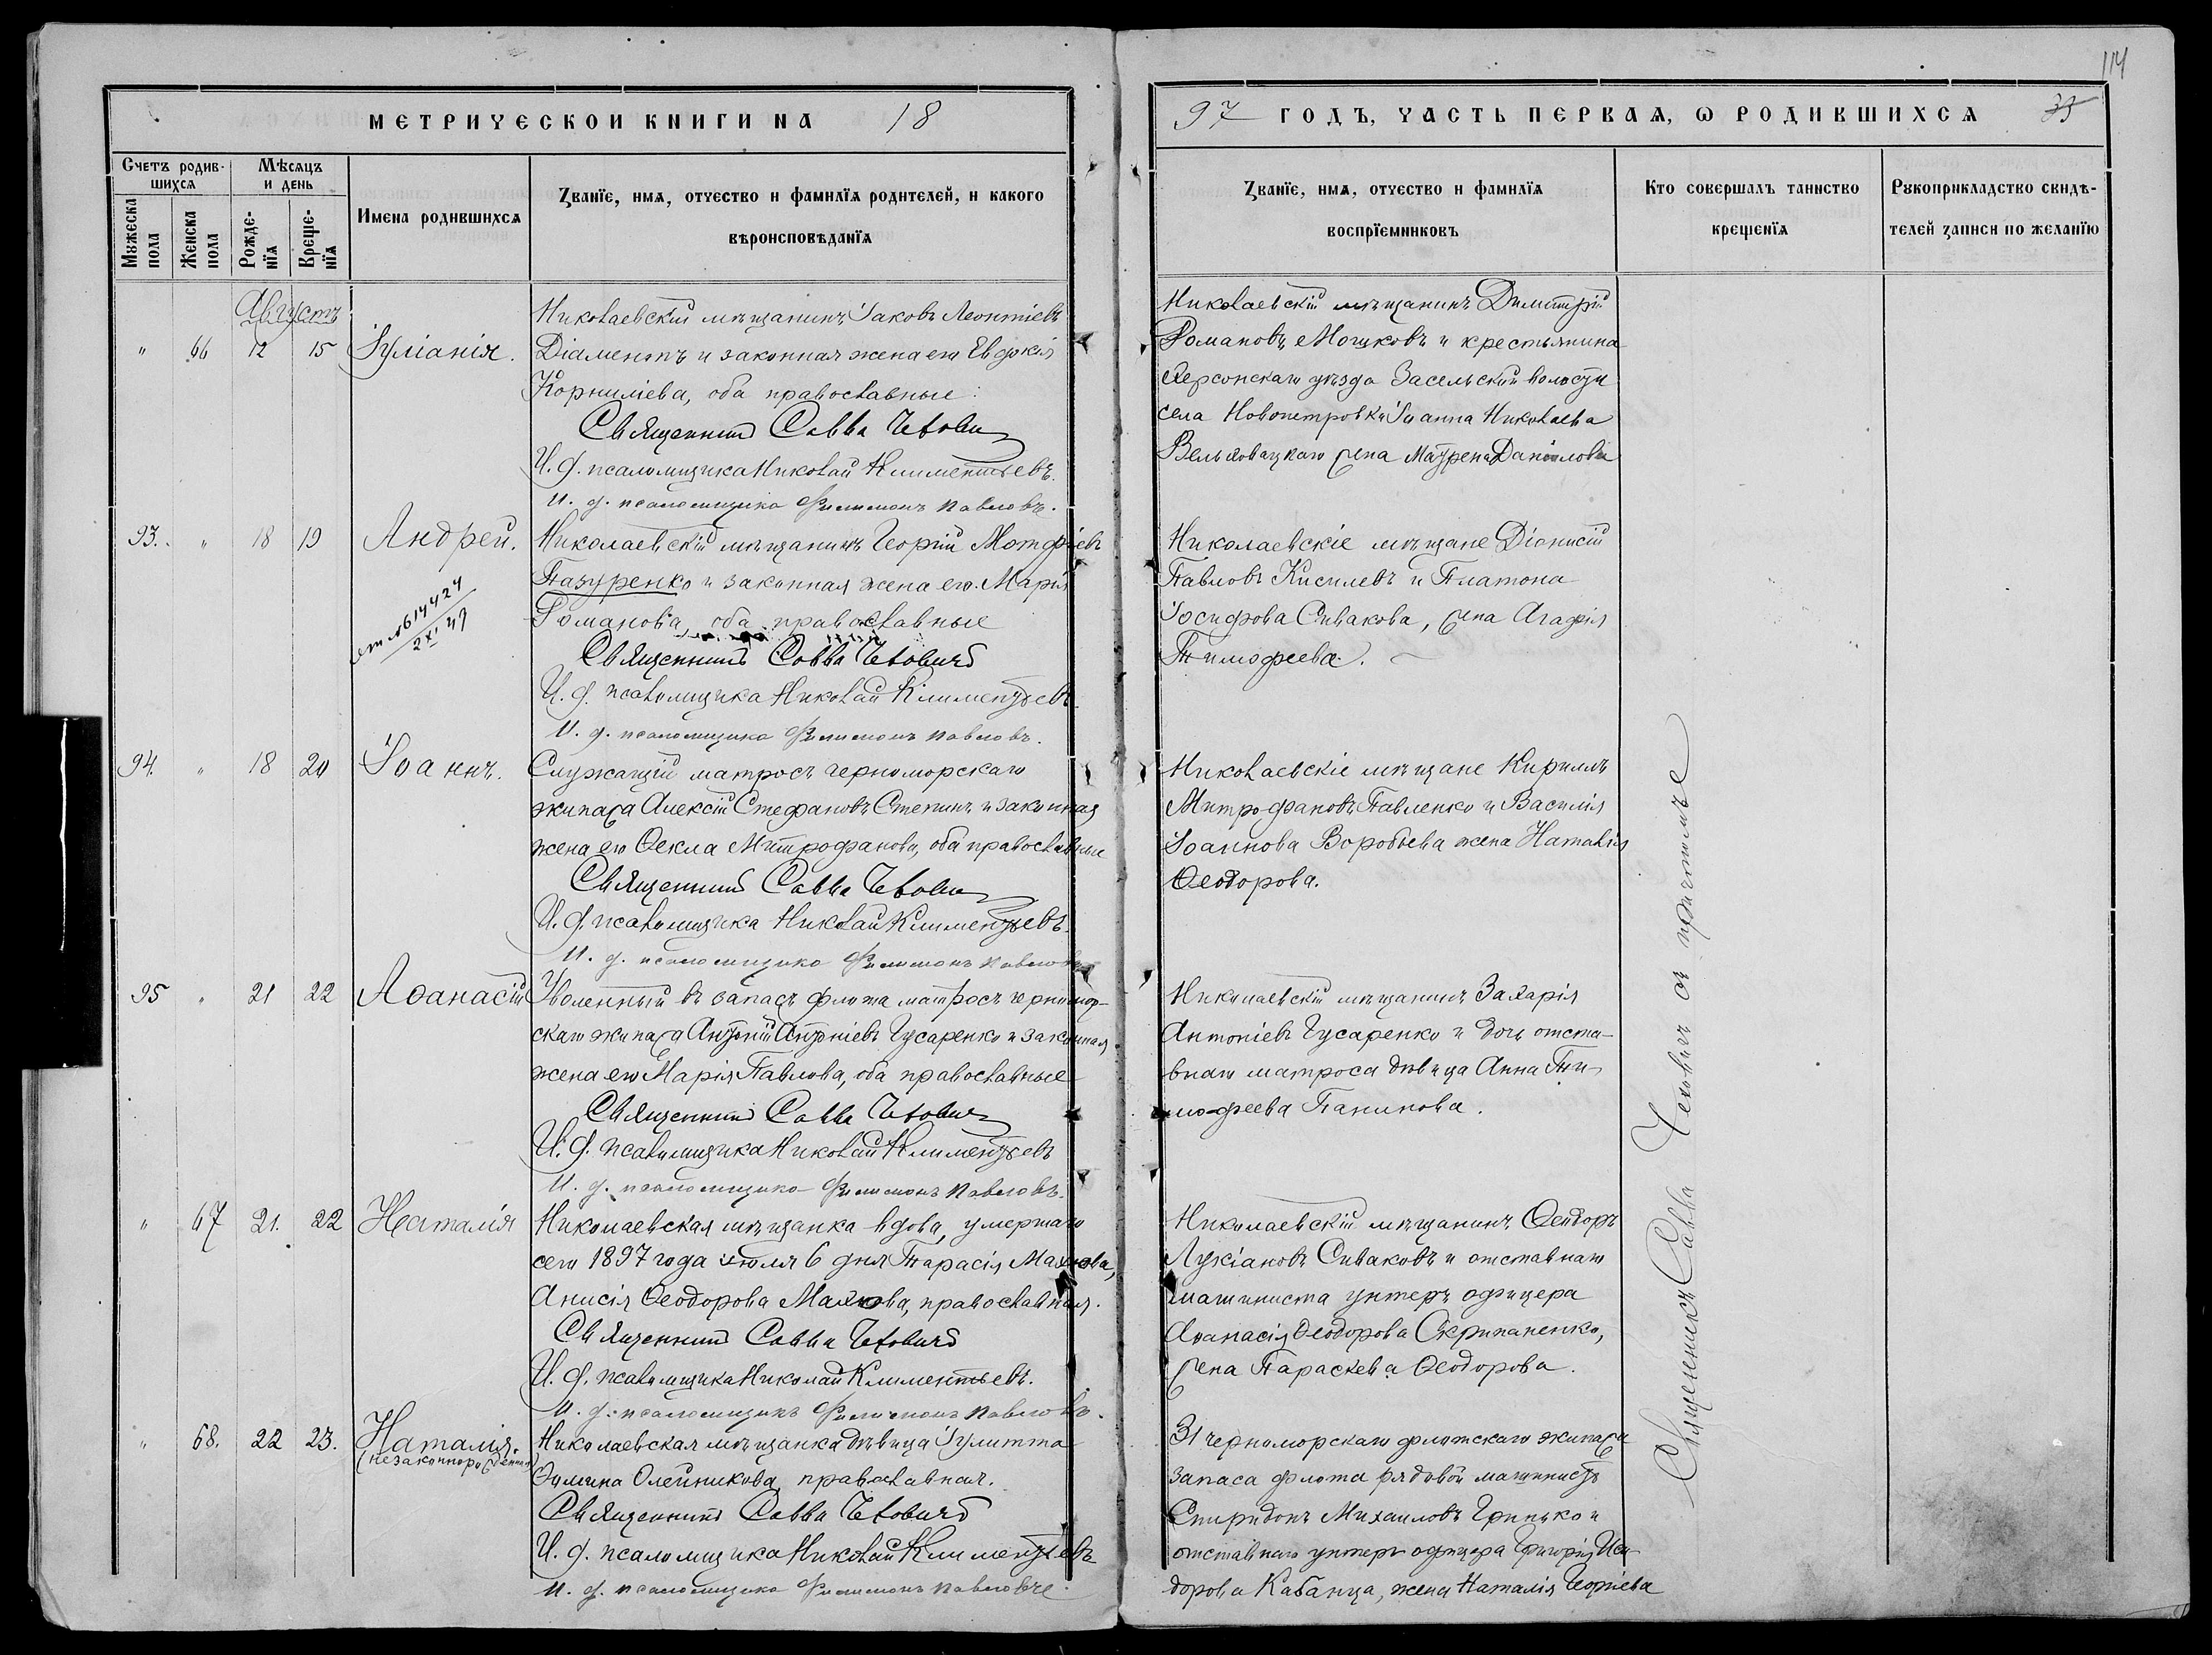 114
МЕТРИЧЕСКОЙ КНИГИ НА 18
97 ГОДЪ, ЧАСТЬ ПЕРВАЯ, Ѡ РОДИВШИХСЯ 33
Счетъ родив-
шихся
Мѣсяцъ
и день
Мужеска
пола
Женска
пола
Рожде-
нїя
Креще-
нїя
Имена родившихся
Званїе, имя, отчество и фамилїя родителей, и какого
вѣроисповѣданїя
Званїе, имя, отчество и фамилїя
воспрїемниковъ
Кто совершалъ таинство
крещенїя
Рукоприкладство свидѣ-
телей записи по желанїю
Августъ
" 66 12 15 Іуліанія.
Николаевскій мѣщанинъ Іаковъ Леонтіевъ
Діаментъ и законная жена его Евдокія
Корниліева, оба православные:
Священникъ Савва Чехович
И. д. псаломщика Николай Климентьевъ.
И. д. псаломщика Филимонъ Павловъ.
Николаевскій мѣщанинъ Димитрій
Романовъ Мошковъ и крестьянина
Херсонскаго уѣзда Засельской волости
села Новопетровки Іоанна Николаева
жена Маѵрена Даніилова
93. " 18 19 Андрей.
614424
2 XI 49
Николаевскій мѣщанинъ Георгій Матфіевъ
Пазуренко и законная жена его Марія
Романова, оба православные
Священникъ Савва Чеховичъ
И. д. псаломщика Николай Климентьевъ.
И. д. псаломщика Филимонъ Павловъ.
Николаевскіе мѣщане Діонисій
Павловъ Киселевъ и Платона
Іосифова Сивакова, жена Агафія
Тимофеева.
94. " 18 20 Іоаннъ.
Служащій матросъ черноморскаго
экипажа Алексій Стефановъ Степинъ и законная
жена его Ѳекла Митрофанова, оба православные
Священникъ Савва Чехович
И. д. псаломщика Николай Климентьевъ.
И. д. псаломщика Филимонъ Павловъ
Николаевскіе мѣщане Кириллъ
Митрофановъ Павленко и Василія
Іоаннова Воробьева жена Наталія
Ѳеодорова.
95 " 21 22 Аѳанасій
Уволенный въ запасъ флота матросъ черномор-
скаго экипажа Антоній Антоніевъ Гусаренко и законная
жена его Марія Павлова, оба православные
Священникъ Савва Чехович
И. д. псаломщика Николай Климентьевъ
И. д. псаломщика Филимонъ Павловъ.
Николаевскій мѣщанинъ Захарія
Антоніевъ Гусаренко и дочь отста-
внаго матроса дѣвица Анна Ти-
мофеева Панинова.
" 67 21. 22 Наталія
Николаевская мѣщанка вдова, умершаго
сего 1897 года іюля 6 дня Тарасія Махнова,
Анисія Ѳеодорова Махнова, православная.
Священникъ Савва Чеховичъ
И. д. псаломщика Николай Климентьевъ.
И. д. псаломщикъ Филимонъ Павловъ.
Николаевскій мѣщанинъ Ѳеодоръ
Лукіановъ Сиваковъ и отставнаго
машиниста унтеръ офицера
Аѳанасія Ѳеодорова Скрипаненко,
жена Параскева Ѳеодорова.
" 68. 22 23. Наталія.
(незаконнорожденная)
Николаевская мѣщанка дѣвица Іулитта
Олейникова, православная.
Священникъ Савва Чеховичъ
И. д. псаломщика Николай Климентьевъ
И. д. псаломщика Филимонъ Павловъ.
31 черноморскаго флотскаго экипажа
запаса флота рядовой машинистъ
Спиридонъ Михаиловъ Гринько и
отставнаго унтеръ офицера Григорія Иси-
дорова Кабанца, жена Наталія Георгіева
Священникъ Савва Чеховичъ съ причтомъ